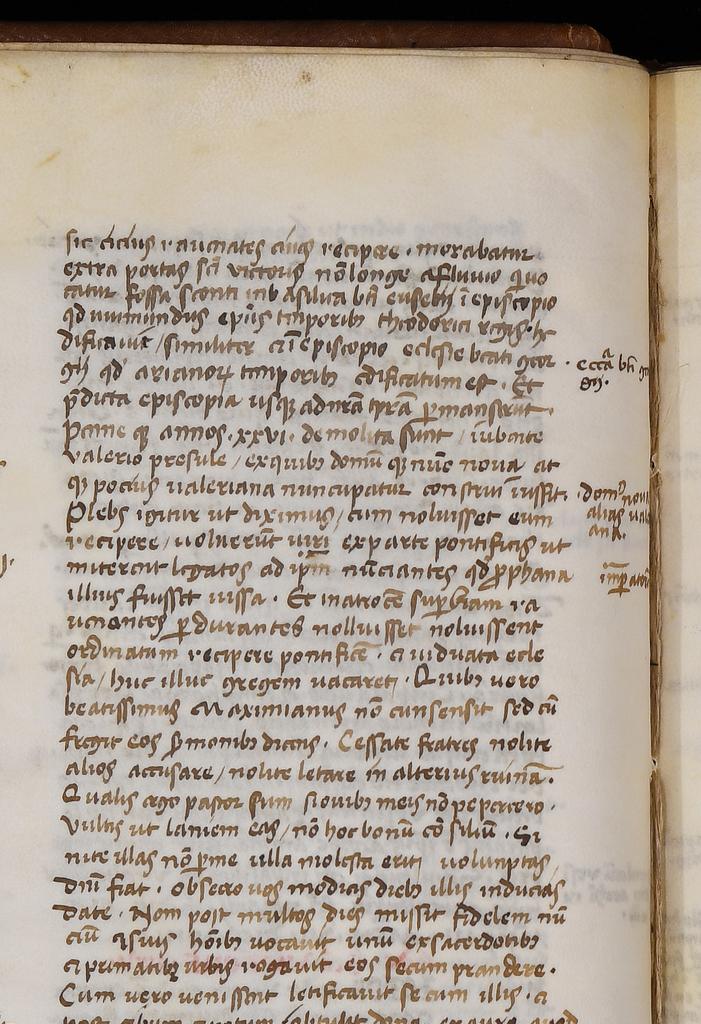 sic citius rauenates ciues recipere · morabatur
extra portas sci victoris nō longe a fluuio q̄ uo
catur fossa sconii in basilica bti eusebii ī episcopio
qd unimundus ep̄us tmporib3 theodorici regis · he
dificauit / similiter ī episcopio eclesie beati geor
gii qd arianor tmporib3 edificatum est · Et
p̄dicta episcopia usq adnr̄am tpr̄am p̄manserūt ·
pene q annos · xxvi · demolita sunt / iubente
valerio presule / ex quib3 domū q̄ nūc nova at
q pocius valeriana nuncupatur construi iussit ·
Plebs igitur ut diximus / cum noluisset eum
recipere / uoluerūt uiri ex parte pontificis ut
mitterent legatos ad ip̄m nūciantes qd prophana
illius fuisset iussa · Et in atroce supbiam ra
uenantes p̄durantes nolluisset noluissent
ordinatum recipere pontificē · ci uiduata ecle
sia / huc illuc gregem uacaret · Quib3 uero
beatissimus Maximianus nō cunsensit sed cū
fregit eos sermonib3 dicens · Cessate fratres nolite
alios accusare / nolite letare in alterius ruinā ·
Qualis ergo pastor sum si ouib3 meis nō pepercero ·
vultis ut laniem eas / nō hoc bonū cōsiliū · Si
nite illas nō p̄ me ulla molesta erit uolunptas
Dn̄i fiat · obsecro uos modicas dieb3 illis inducias
Date · Nam post multos dies missit fidelem nū
ciū suis hōib3 uocauit unū ex sacerdotib3
ci primatib3 urbis rogauit eos secum prandere ·
Cum vero venissent letificauit se cum illis · ci
· eccā bti geo
gii ·
· dom9 nova
alias vale
ana ·